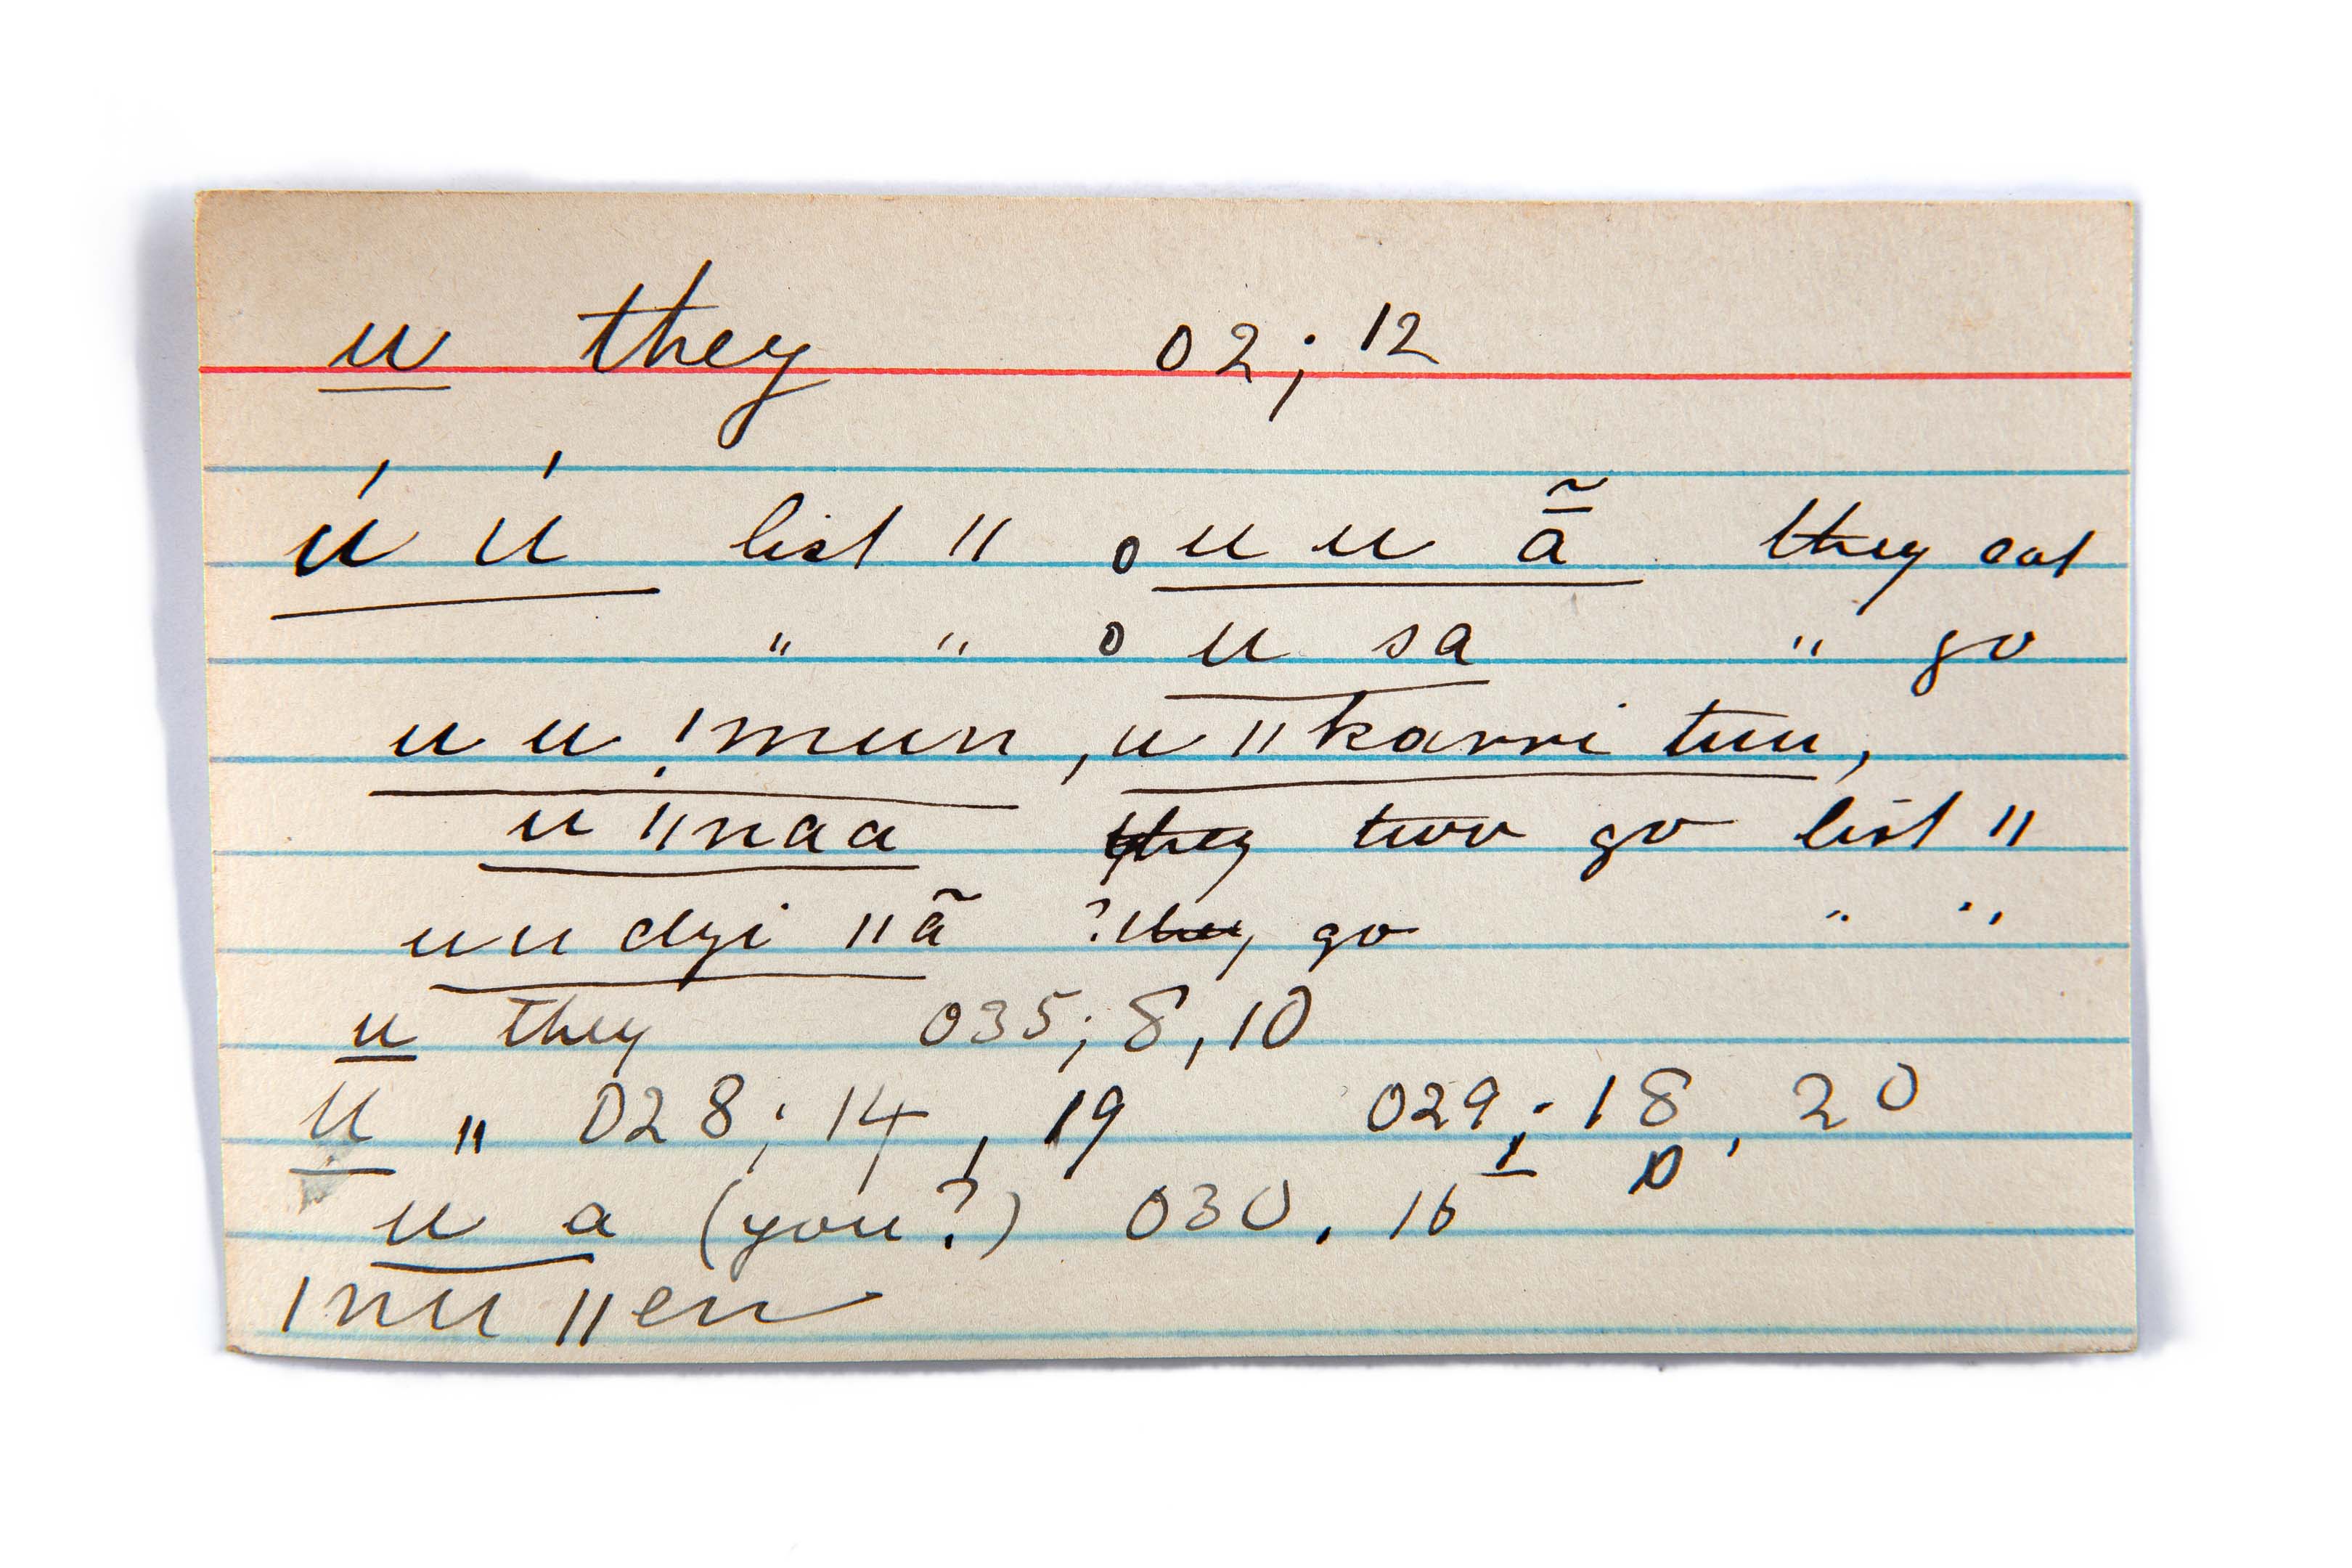 u they 02; 12
ú ú list 11 o u u ā̃ they eat
" " o u sa " go
u u !mun, u ǁkarri tuu,
u ǁnaa they two go list 11
uu dyi ǁã ? they go " "
u they 035; 8, 10
u " 028; 14, 19 029; 18, 20
u a (you?) 030, 16
ǀnu ǁen